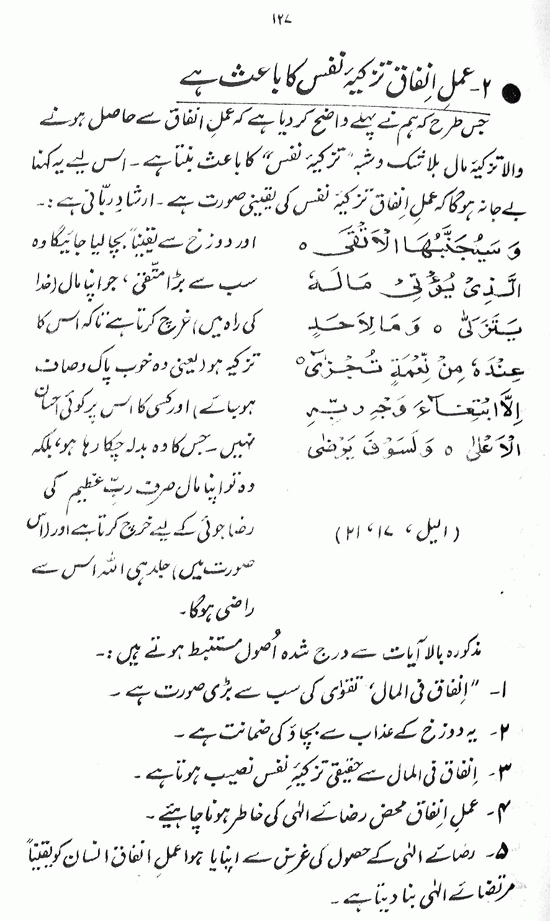 ۱۲۷
۲- عملِ اِنفاق تزکیۂ نفس کا باعث ہے
جس طرح کہ ہم نے پہلے واضح کر دیا ہے کہ عملِ انفاق سے حاصل ہونے
والا تزکیۂ مال بلا شک و شبہ "تزکیۂ نفس" کا باعث بنتا ہے۔ اس لیے یہ کہنا
بے جا نہ ہوگا کہ عملِ انفاق تزکیۂ نفس کی یقینی صورت ہے۔ ارشادِ ربّانی ہے:۔
وَسَيُجَنَّبُهَا الْاَتْقَى ۝
الَّذِىْ يُؤْتِىْ مَالَهٗ
يَتَزَكّٰى ۝ وَمَا لِاَحَدٍ
عِنْدَهٗ مِنْ نِّعْمَةٍ تُجْزٰٓى ۝
اِلَّا ابْتِغَآءَ وَجْهِ رَبِّهِ
الْاَعْلٰى ۝ وَلَسَوْفَ يَرْضٰى
(الیل، ۱۷، ۲۱)
اور دوزخ سے یقیناً بچا لیا جائیگا وہ
سب سے بڑا متّقی، جو اپنا مال (خدا
کی راہ میں) خرچ کرتا ہے تاکہ اس کا
تزکیہ ہو (یعنی وہ خوب پاک و صاف
ہو جائے) اور کسی کا اس پر کوئی احسان
نہیں۔ جس کا وہ بدلہ چکا رہا ہو، بلکہ
وہ تو اپنا مال صرف ربِّ عظیم کی
رضا جوئی کے لیے خرچ کرتا ہے اور (اس
صورت میں) جلد ہی اللہ اس سے
راضی ہوگا۔
مذکورہ بالا آیات سے درج شدہ اُصول مستنبط ہوتے ہیں:۔
۱- "اِنفاق فی المال" تقوٰی کی سب سے بڑی صورت ہے۔
۲- یہ دوزخ کے عذاب سے بچاؤ کی ضمانت ہے۔
۳- اِنفاق فی المال سے حقیقی تزکیۂ نفس نصیب ہوتا ہے۔
۴- عملِ اِنفاق محض رضائے الٰہی کی خاطر ہونا چاہیئے۔
۵- رضائے الٰہی کے حصول کی غرض سے اپنایا ہوا عملِ انفاق انسان کو یقیناً
مرتضائے الٰہی بنا دیتا ہے۔